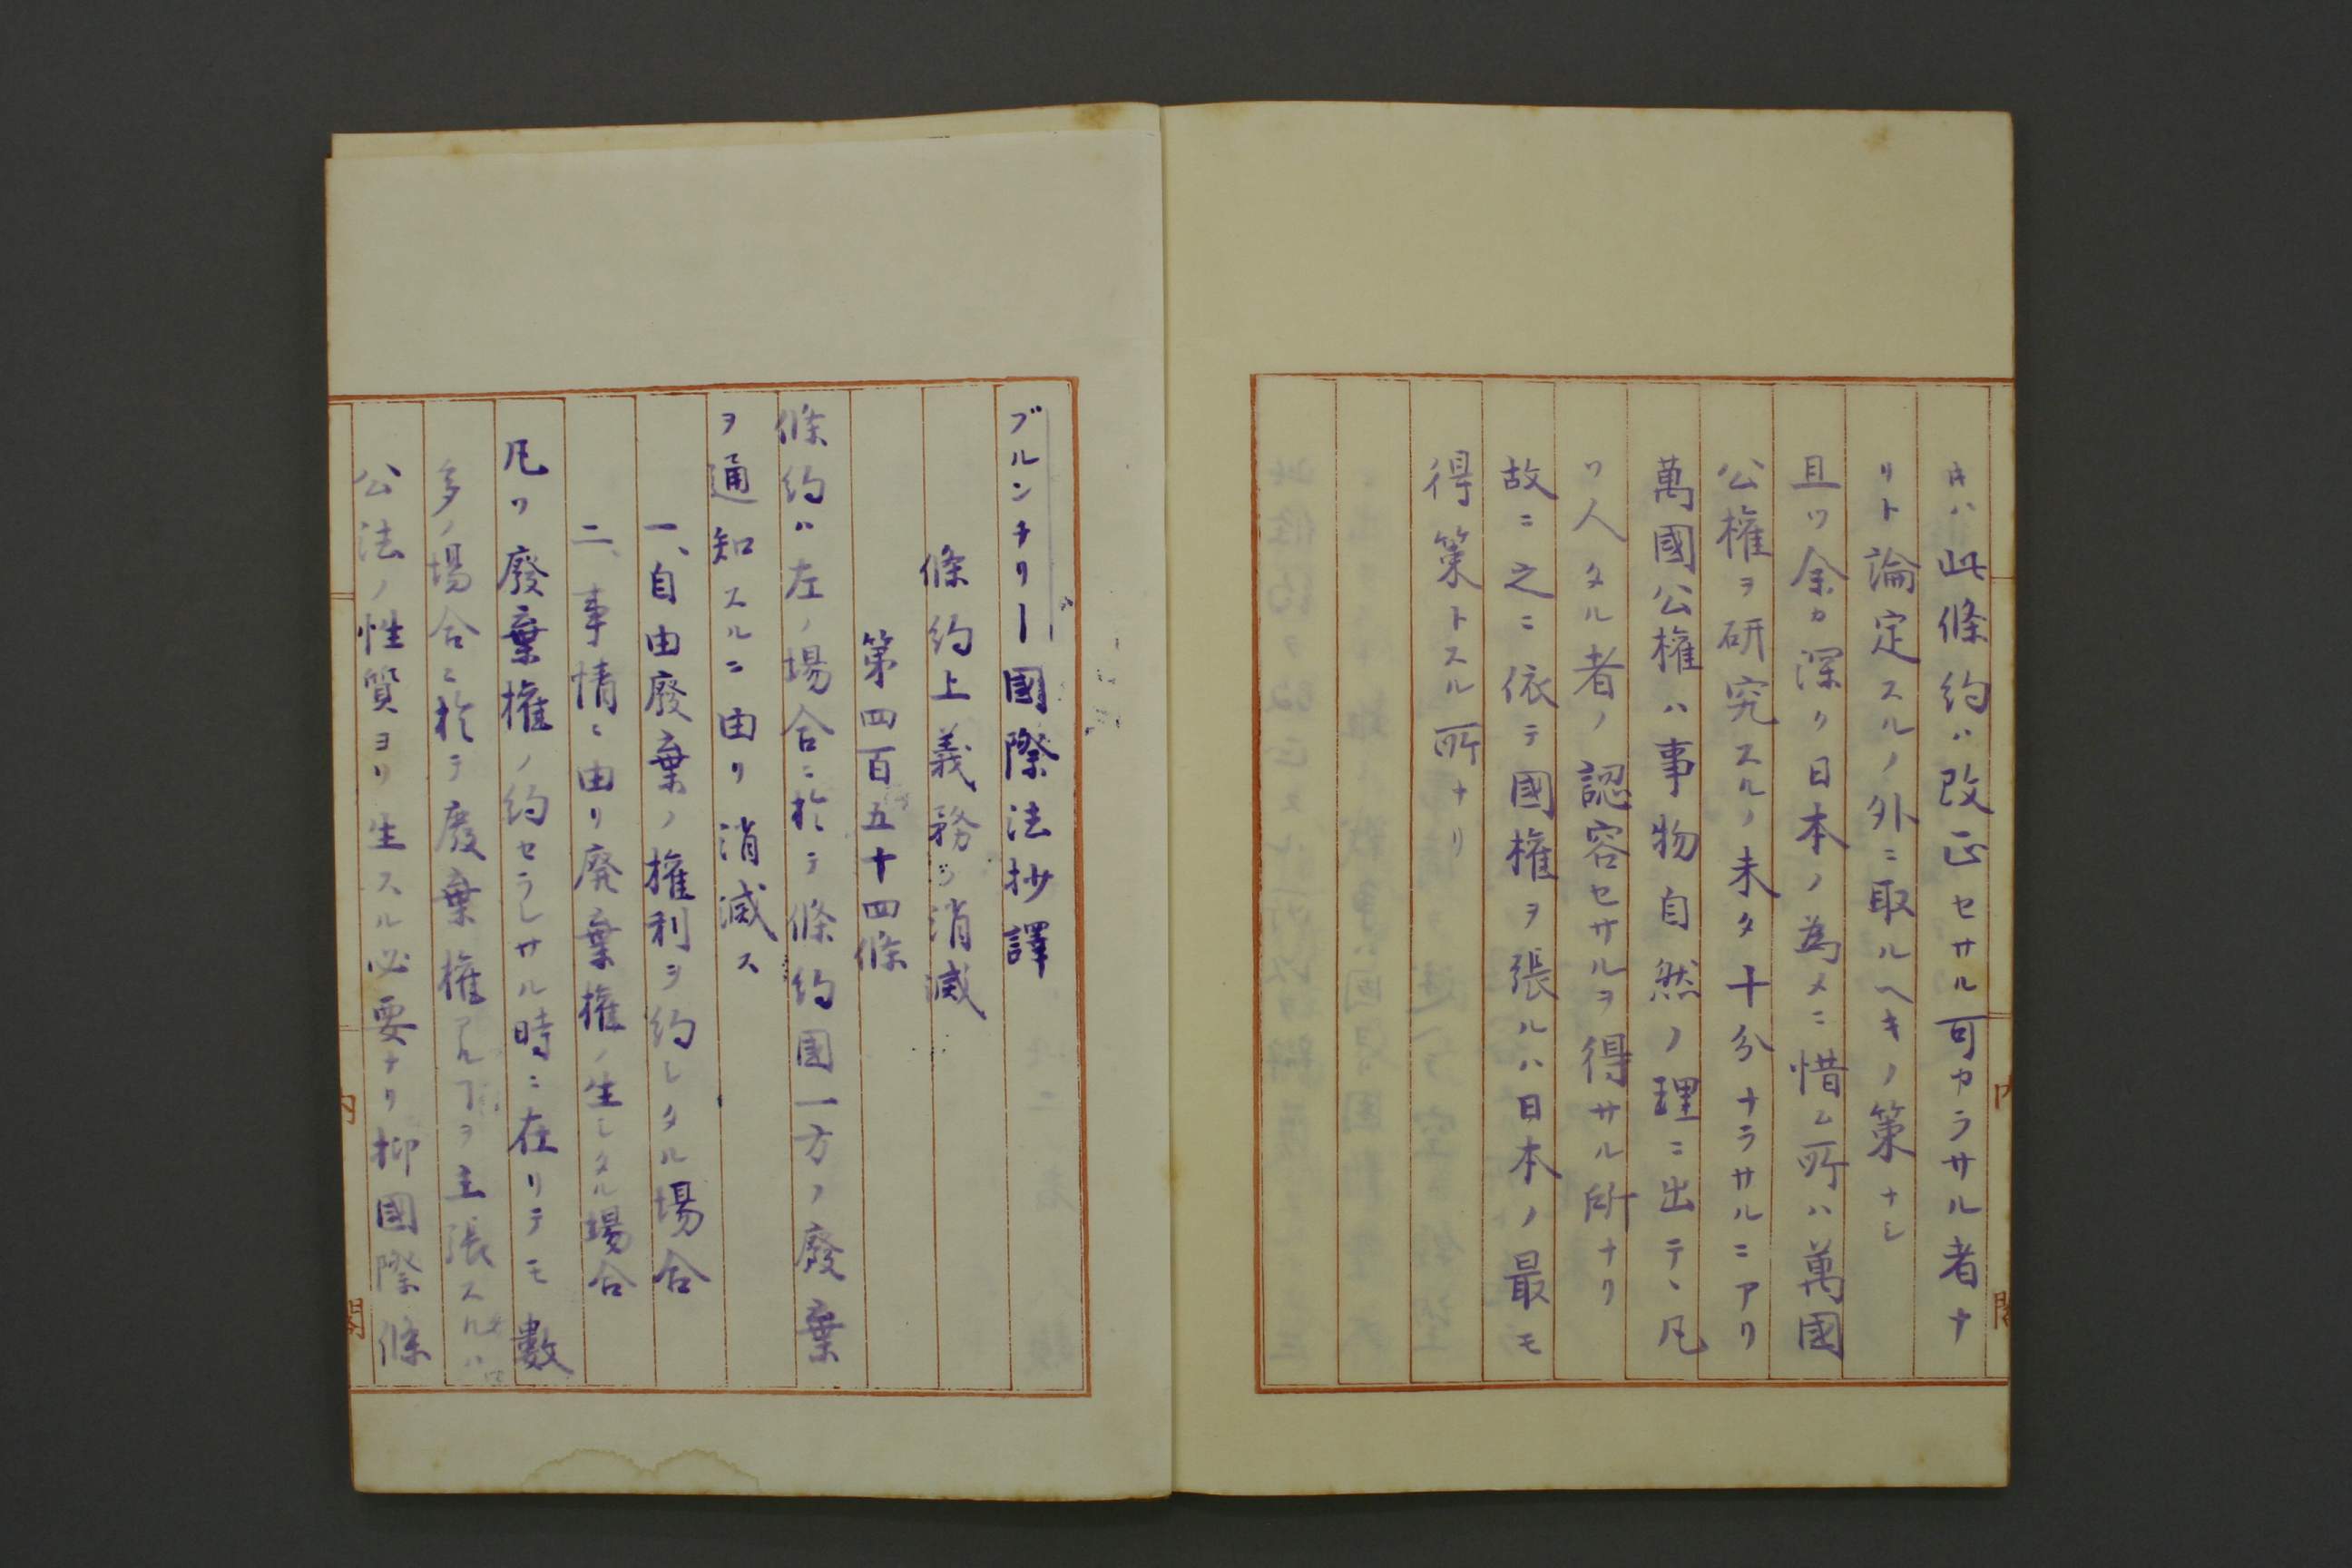 キハ此條約ハ改正セサル可カラサル者ナ
リト論定スルノ外ニ取ルヘキノ策ナシ
且ツ余カ深ク日本ノ為メニ惜ム所ハ萬國
公権ヲ研究スルノ未タ十分ナラサルニアリ
萬國公権ハ事物自然ノ理ニ出テ、凡
ソ人タル者ノ認容セサルヲ得サル所ナリ
故ニ之ニ依テ國権ヲ張ルハ日本ノ最モ
得策トスル所ナリ
内閣
ブルンチリー國際法抄譯
條約上義務ノ消滅
第四百五十四條
條約ハ左ノ場合ニ於テ條約國一方ノ廢棄
ヲ通知スルニ由リ消滅ス
一、自由廢棄ノ權利ヲ約シタル場合
二、事情ニ由リ廃棄權ノ生シタル場合
凡ソ廢棄權ノ約セラレサル時ニ在リテモ數
多ノ場合ニ於テ廢棄權アルヿヲ主張スルハ
公法ノ性質ヨリ生スル必要ナリ抑國際條
内閣